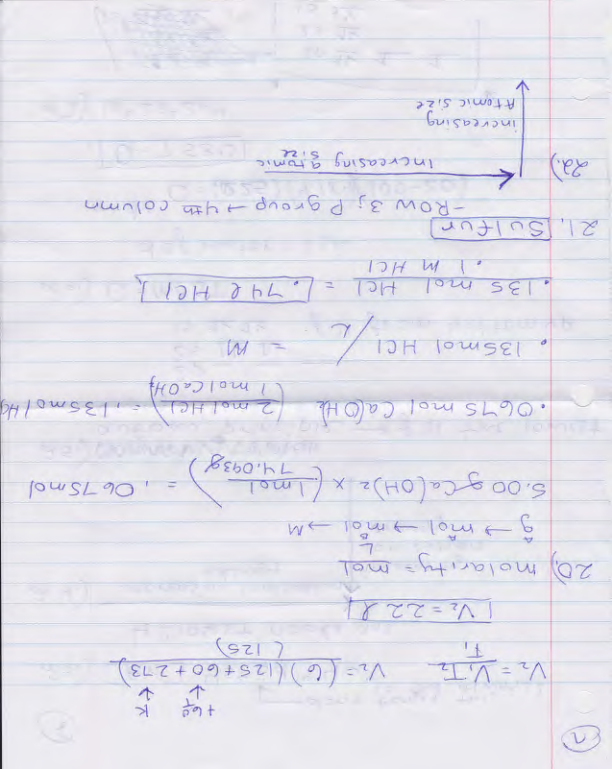 +60°
K
V₂ = V₁T₂ / T₁ V₂ = (6)(125+60+273) / (125)
V₂ = 22 l
20.) molarity = mol / L
g → mol → mol → M
5.00 g Ca(OH)₂ x (1 mol / 74.093g) = .0675 mol
.0675 mol Ca(OH)₂ (2 mol HCl / 1 mol Ca(OH)₂) = .135 mol HCl
.135 mol HCl / L = M
.135 mol HCl / .1 M HCl = .74 l HCl
21. Sulfur
- Row 3; P group → 4th column
22.) increasing atomic size
increasing Atomic size